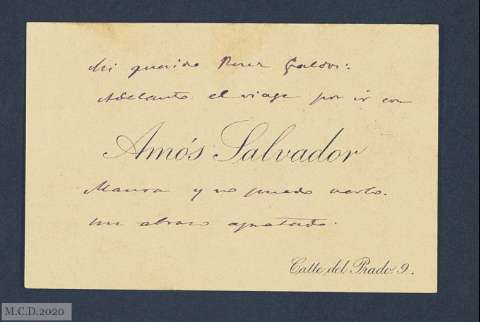 Mi querido Perez Galdós:
Adelanto el viage por ir con
Amós Salvador
Maura y no puedo verlo.
un abrazo apretado.
Calle del Prado 9.
M.C.D.2020